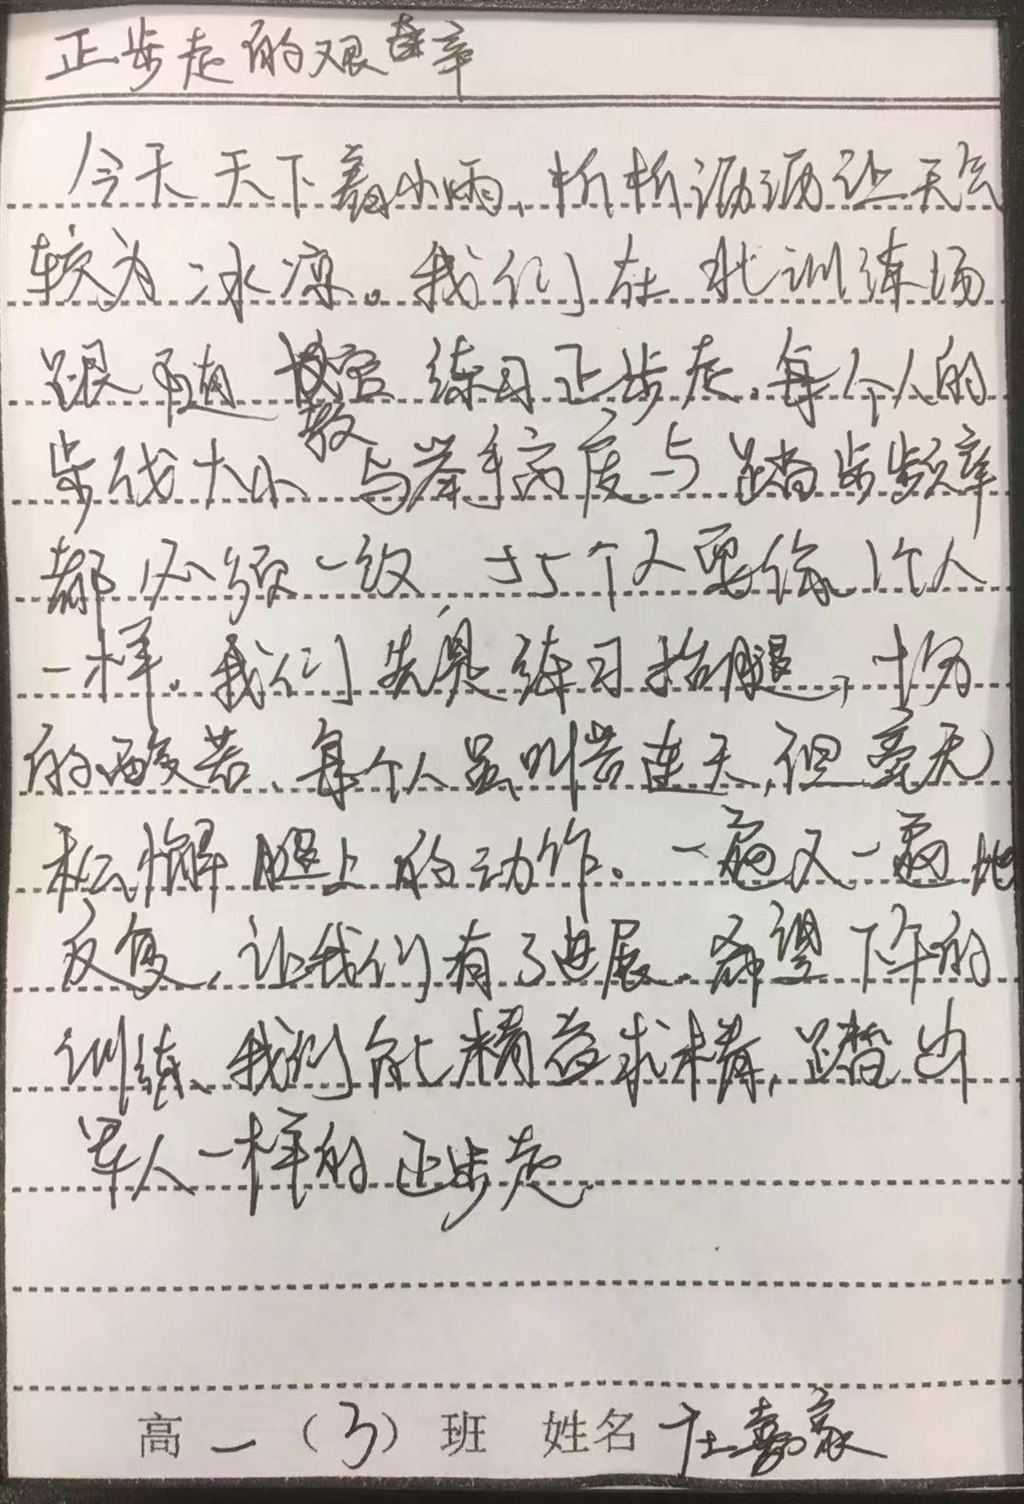 正步走的艰辛
今天天下着小雨，析析沥沥让天气
较为冰凉。我们在北训练场
跟随教官练习正步走。每个人的
步伐大小与举手高度与踏步频率
都必须一致，55个人要像1个人
一样。我们先是练习抬腿，十分
的酸苦、每个人虽叫苦连天，但毫无
松懈腿上的动作。一遍又一遍地
反复，让我们有了进展。希望下午的
训练、我们能精益求精，踏出
军人一样的正步走
高一（3）班 姓名 庄嘉豪